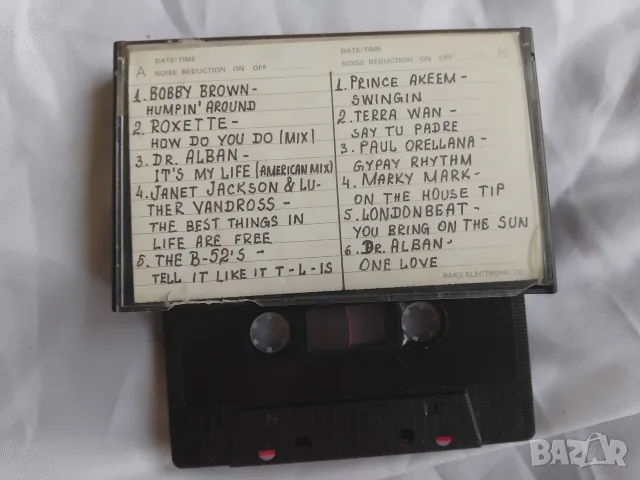 A DATE/TIME
NOISE REDUCTION ON OFF
1. BOBBY BROWN -
HUMPIN' AROUND
2. ROXETTE -
HOW DO YOU DO (MIX)
3. DR. ALBAN -
IT'S MY LIFE (AMERICAN MIX)
4. JANET JACKSON & LU-
THER VANDROSS -
THE BEST THINGS IN
LIFE ARE FREE
5. THE B-52'S -
TELL IT LIKE IT T-L-IS
DATE/TIME B
NOISE REDUCTION ON OFF
1. PRINCE AKEEM -
SWINGIN
2. TERRA WAN -
SAY TU PADRE
3. PAUL ORELLANA -
GYPAY RHYTHM
4. MARKY MARK -
ON THE HOUSE TIP
5. LONDONBEAT -
YOU BRING ON THE SUN
6. DR. ALBAN -
ONE LOVE
RAKS-ELECTRONIC
BAZAR